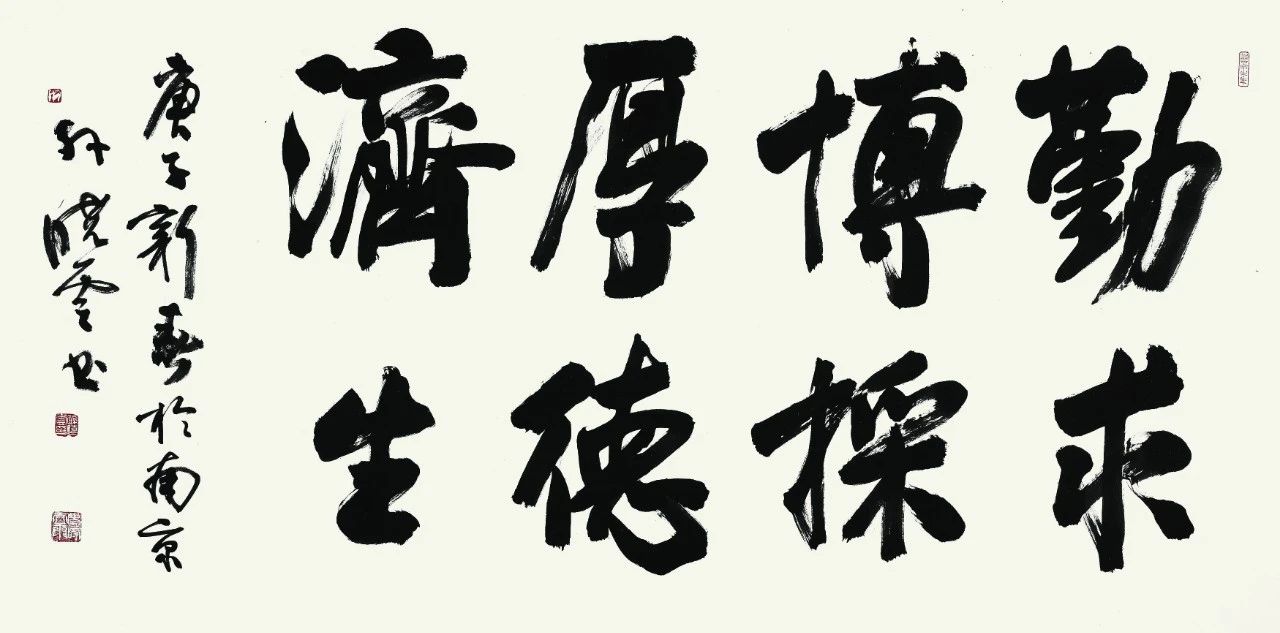 勤求
博採
厚德
濟生
庚子新春於南京
孙晓云书